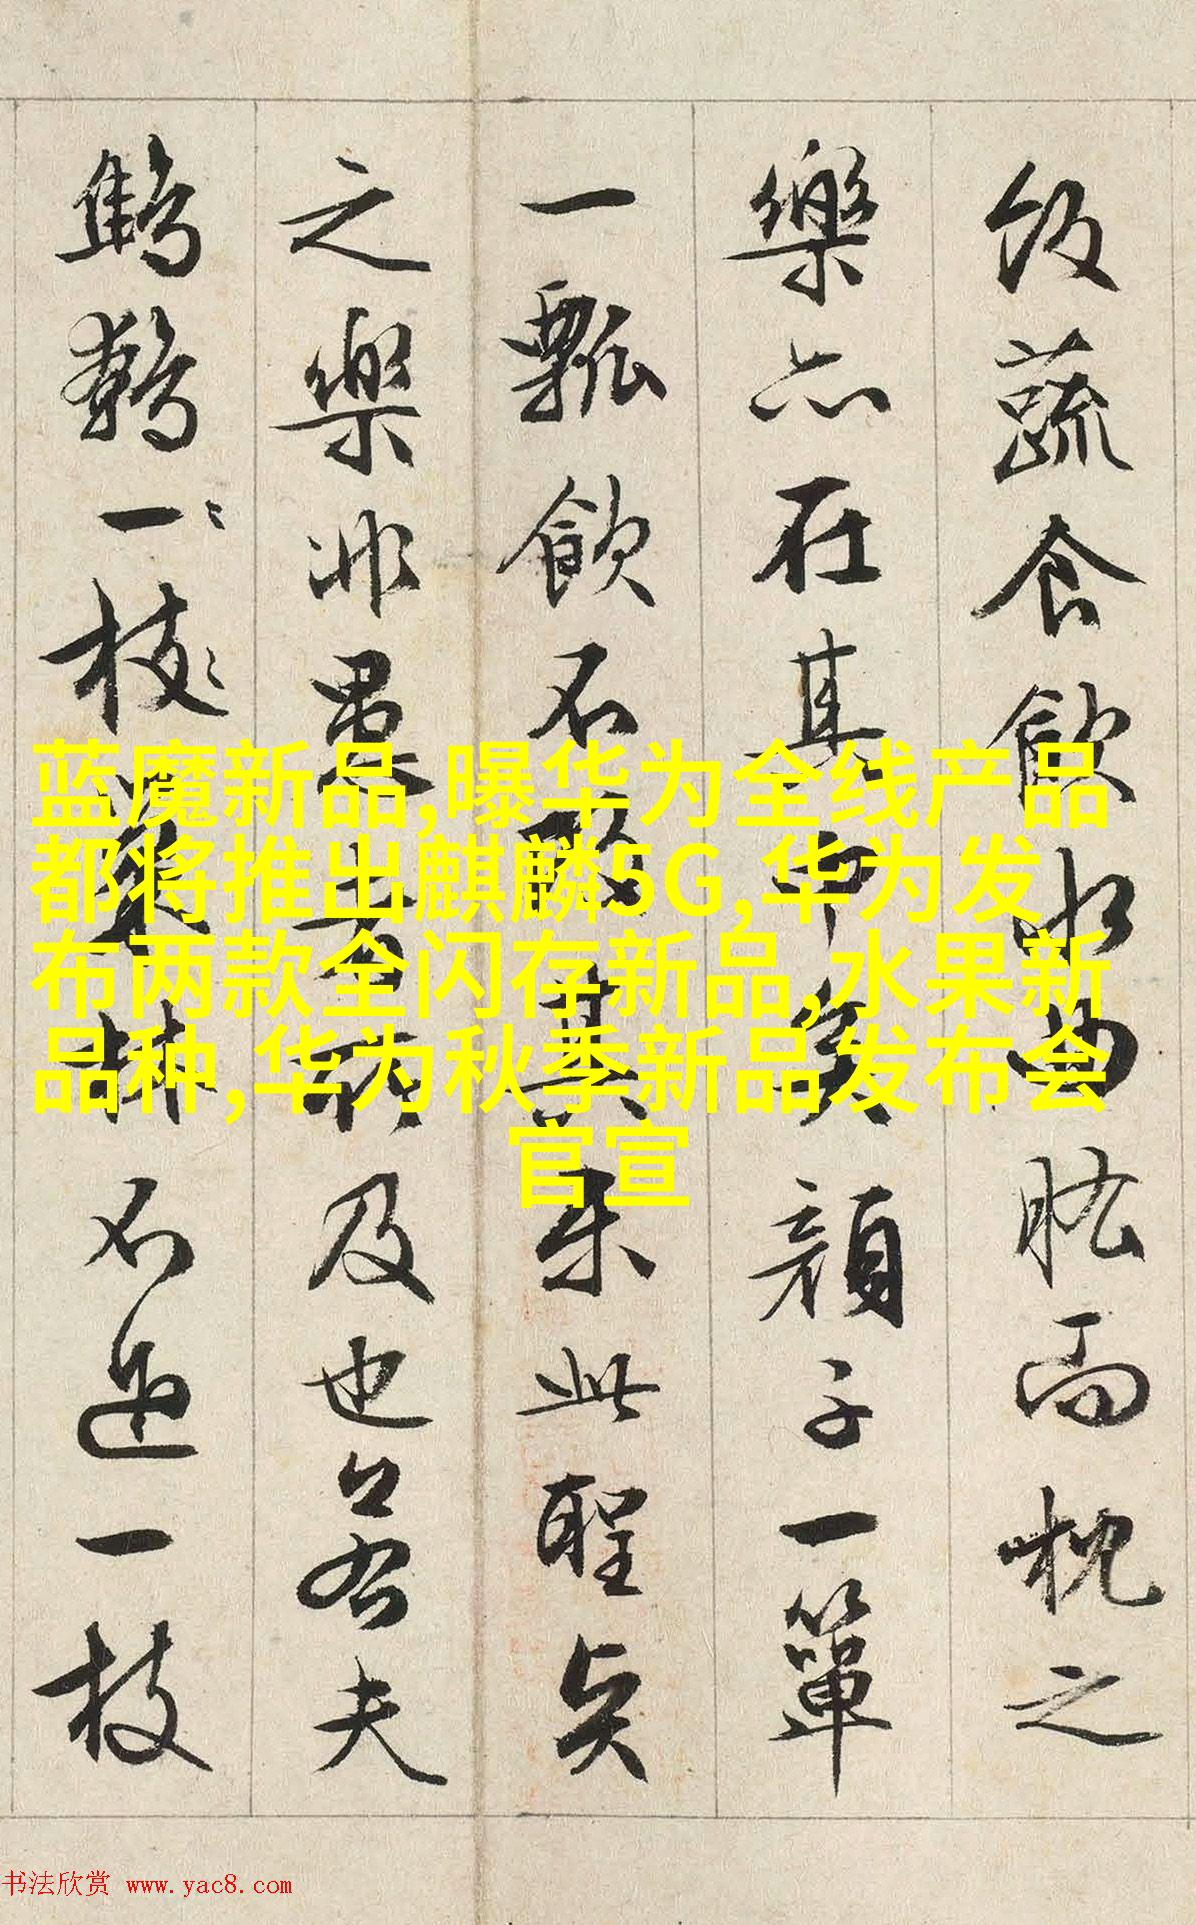 飯蔬食飲水曲肱而枕之
樂亦在其中矣顏子一簞
一瓢飲不改其樂此聖賢
之樂非愚者所及也若夫
鷦鷯一枝巢林不過一枝
蓝魔新品,曝华为全线产品
都将推出麒麟5G,华为发
布两款全闪存新品,水果新
品种,华为秋季新品发布会
官宣
书法欣赏 www.yac8.com